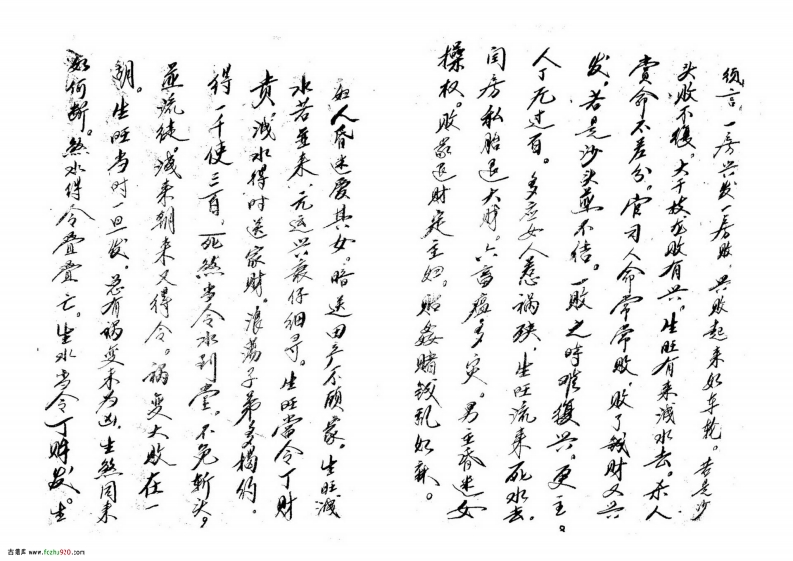 须言。一房兴发一房败，兴败起来如车轮。若是沙
头败不复。大干枝龙败有兴。生旺有来浅水去。杀人
卖命不差分。官司人命常常败，败了钱财又兴
发。若是沙头並不结。一败之時难復兴。更主。
人丁死过百。多应女人惹祸殃，生旺流来死水去。
闰房私胎退大财。六畜瘟多灾。男主昏迷女
操权。败家退财定主妇。贴姦賭钱乱如麻。
妇人昏迷爱其女。暗送田产不顾家。生旺浅
水若並来，元运兴衰仔细寻。生旺當令丁财
贵。浅水得时送家财。浪荡子弟多
得一千使三百，死煞当令水到堂。不免斩头。
並流徒。浅来朝来又得令。祸变大败在一
朝。生旺当时一旦发。总有祸变未为凶。生煞同来
如何断。煞水得令叠叠亡。生水当令丁财发。生
古籍库 www.fczhu920.com